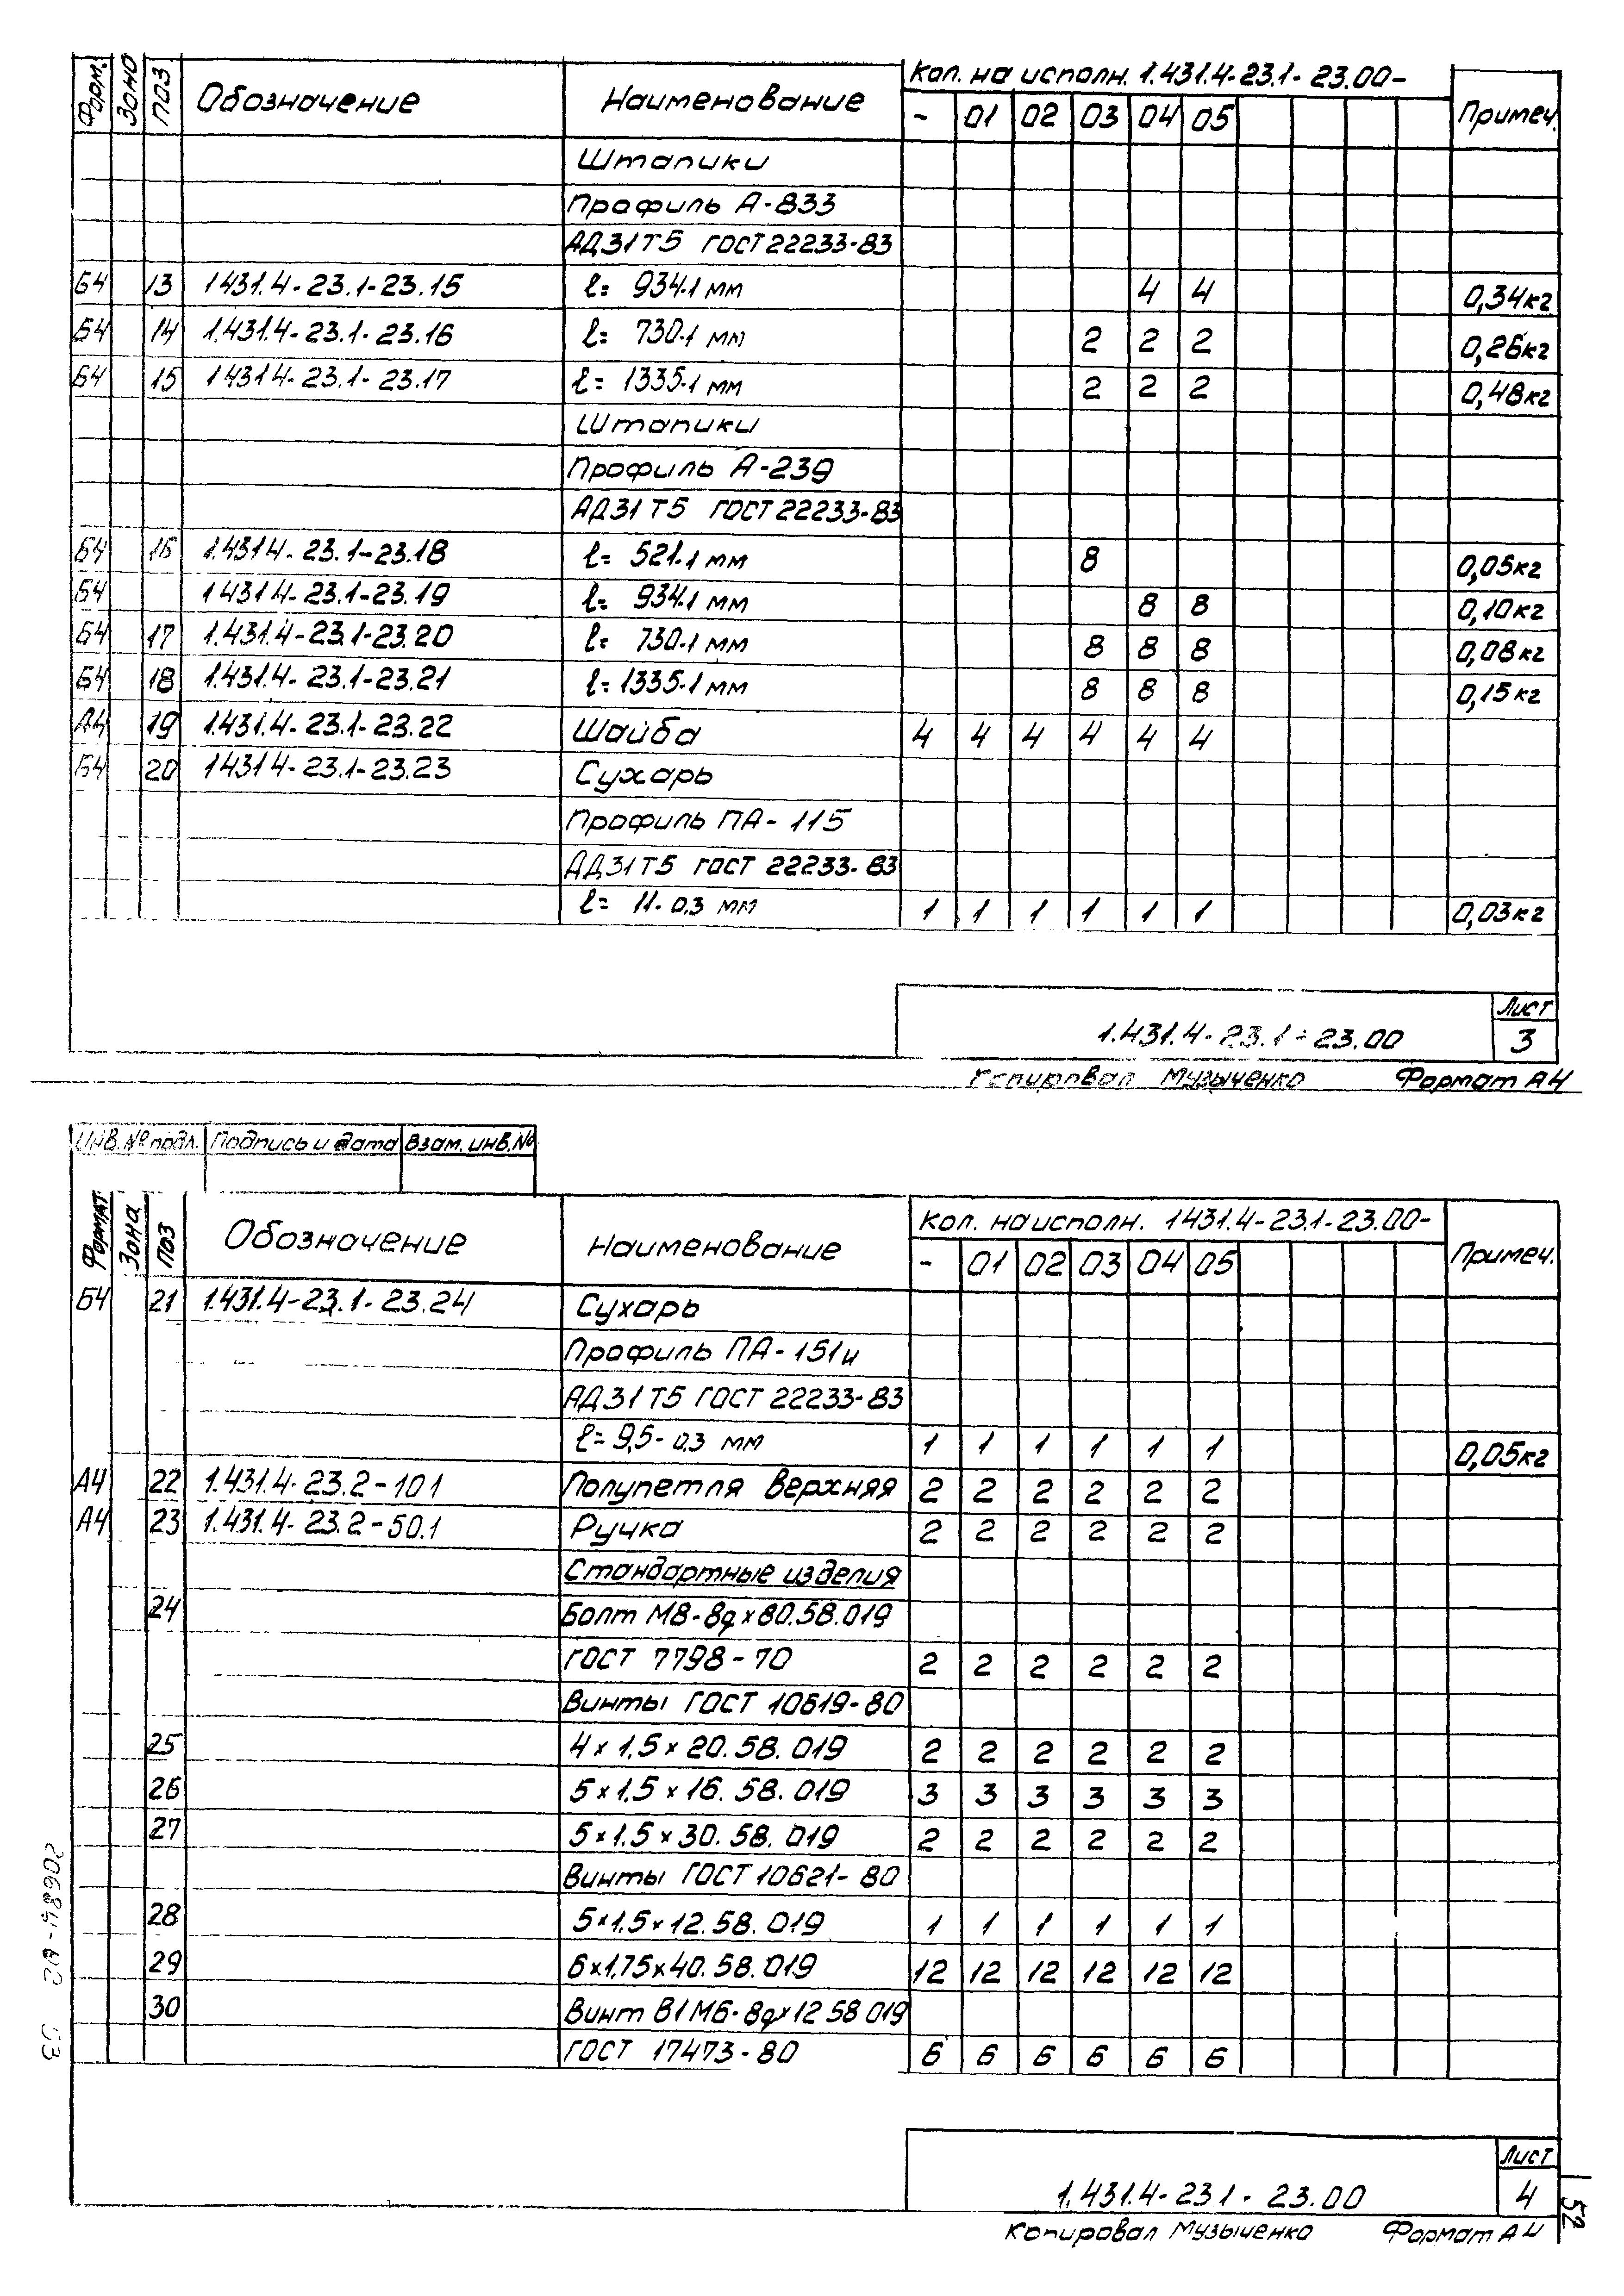 Форм. Зона ПОЗ Обозначение Наименование Кол. на исполн. 1.431.4-23.1-23.00- Примеч.
- 01 02 03 04 05
Штапики
Профиль А-833
АД31Т5 ГОСТ 22233-83
Б4 13 1431.4-23.1-23.15 ℓ= 934-1 мм 4 4 0,34кг
Б4 14 1.431.4-23.1-23.16 ℓ= 730-1 мм 2 2 2 0,26кг
Б4 15 1431.4-23.1-23.17 ℓ= 1335-1 мм 2 2 2 0,48кг
Штапики
Профиль А-239
АД31Т5 ГОСТ 22233-83
Б4 16 1.4314-23.1-23.18 ℓ= 521-1 мм 8 0,05кг
Б4 14314-23.1-23.19 ℓ= 934-1 мм 8 8 0,10кг
Б4 17 1.431.4-23.1-23.20 ℓ= 730-1 мм 8 8 8 0,08кг
Б4 18 1.431.4-23.1-23.21 ℓ=1335-1 мм 8 8 8 0,15кг
А4 19 1.431.4-23.1-23.22 Шайба 4 4 4 4 4 4
Б4 20 14314-23.1-23.23 Сухарь
Профиль ПА-115
АД31Т5 ГОСТ 22233-83
ℓ= 11-0,3 мм 1 1 1 1 1 1 0,03кг
1.431.4-23.1-23.00 Лист
3
Копировал Музыченко Формат А4
Инв.№ подл. Подпись и дата Взам. инв.№
Формат Зона ПОЗ Обозначение Наименование Кол. на исполн. 1431.4-23.1-23.00- Примеч.
- 01 02 03 04 05
Б4 21 1.431.4-23.1-23.24 Сухарь
Профиль ПА-151и
АД31Т5 ГОСТ 22233-83
ℓ=9,5-0,3 мм 1 1 1 1 1 1 0,05кг
А4 22 1.431.4-23.2-101 Полупетля верхняя 2 2 2 2 2 2
А4 23 1.431.4-23.2-50.1 Ручка 2 2 2 2 2 2
Стандартные изделия
24 Болт М8-8g×80.58.019
ГОСТ 7798-70 2 2 2 2 2 2
Винты ГОСТ 10619-80
25 4×1,5×20.58.019 2 2 2 2 2 2
26 5×1,5×16.58.019 3 3 3 3 3 3
27 5×1.5×30.58.019 2 2 2 2 2 2
Винты ГОСТ 10621-80
28 5×1,5×12.58.019 1 1 1 1 1 1
29 6×1,75×40.58.019 12 12 12 12 12 12
30 Винт В1М6-8g×12 58 019
ГОСТ 17473-80 6 6 6 6 6 6
1.431.4-23.1-23.00 Лист
4
Копировал Музыченко Формат А4
52
53